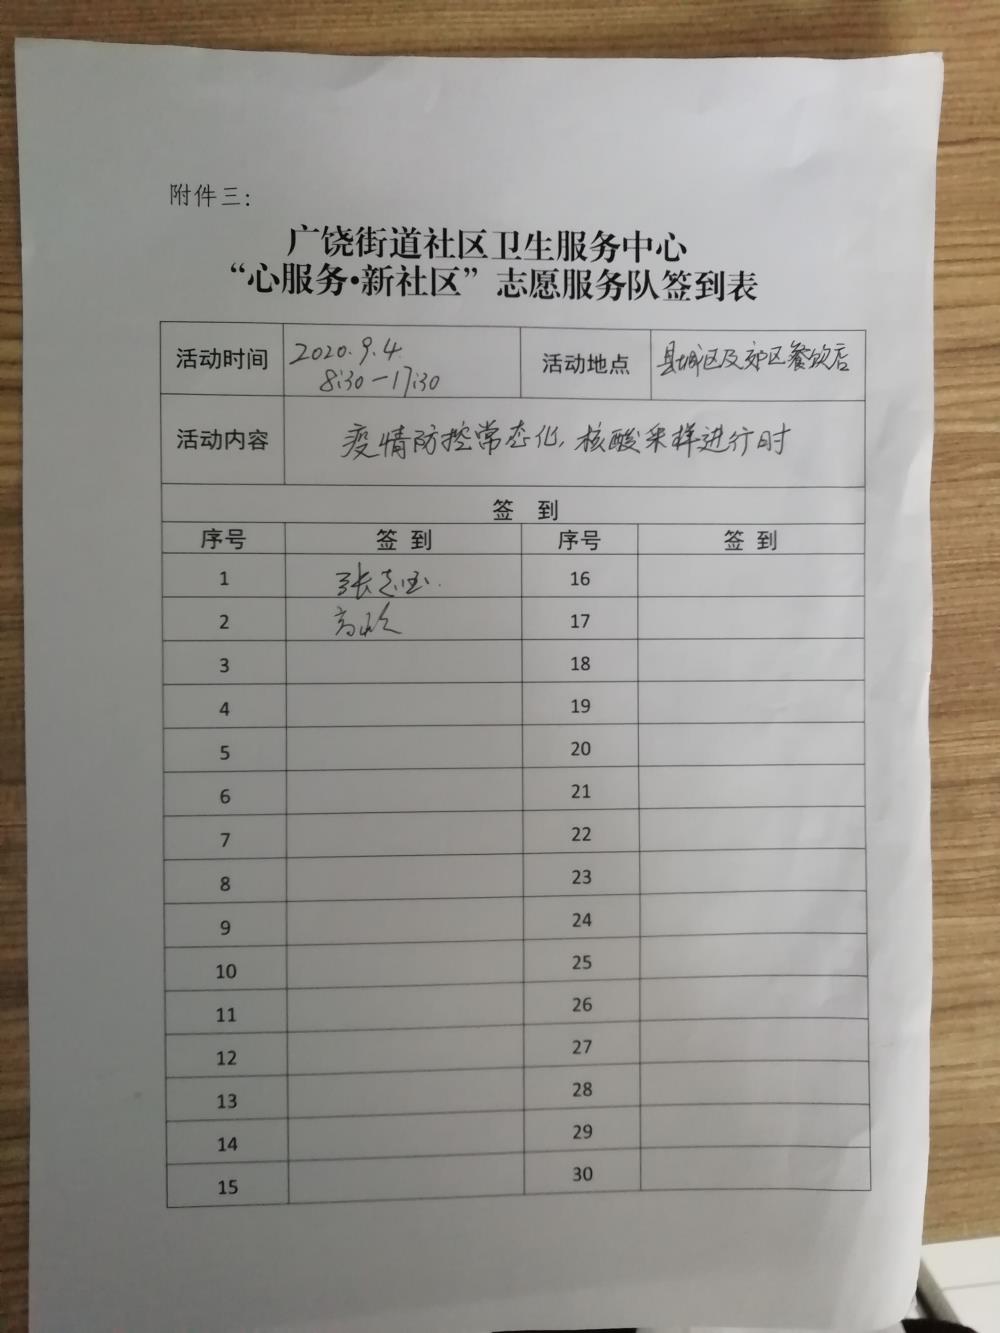 附件三：
广饶街道社区卫生服务中心
“心服务·新社区”志愿服务队签到表
活动时间 2020.9.4 8:30-17:30 活动地点 县城区及郊区餐饮店
活动内容 疫情防控常态化，核酸采样进行时
签 到
序号 签 到 序号 签 到
1 张志 16
2 高 17
3 18
4 19
5 20
6 21
7 22
8 23
9 24
10 25
11 26
12 27
13 28
14 29
15 30